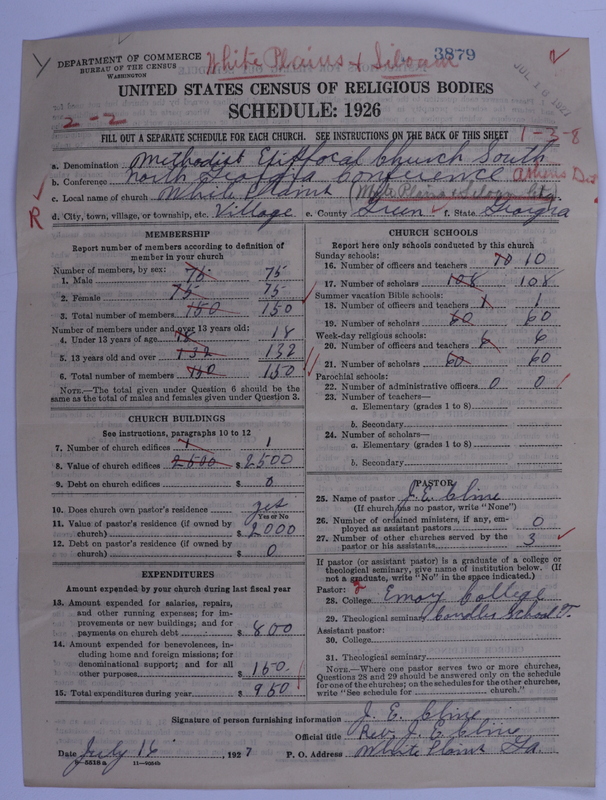 White Plains & Siloam
3879
JUL 18 1927
DEPARTMENT OF COMMERCE
BUREAU OF THE CENSUS
WASHINGTON
UNITED STATES CENSUS OF RELIGIOUS BODIES
SCHEDULE: 1926
2-2
FILL OUT A SEPARATE SCHEDULE FOR EACH CHURCH. SEE INSTRUCTIONS ON THE BACK OF THIS SHEET
1-3-8
a. Denomination Methodist Episcopal Church South
b. Conference North Georgia Conference Athens Dis
c. Local name of church White Plains (White Plains & Siloam
R d. City, town, village, or township, etc. Village e. County Green f. State Georgia
MEMBERSHIP
Report number of members according to definition of
member in your church
Number of members, by sex:
1. Male 75 75
2. Female 75 75
3. Total number of members 150 150
Number of members under and over 13 years old:
4. Under 13 years of age 18 18
5. 13 years old and over 132 132
6. Total number of members 150 150
NOTE.—The total given under Question 6 should be the
same as the total of males and females given under Question 3.
CHURCH BUILDINGS
See instructions, paragraphs 10 to 12
7. Number of church edifices 1 1
8. Value of church edifices 2500 $ 2500
9. Debt on church edifices $ 0
10. Does church own pastor's residence yes
Yes or No
11. Value of pastor's residence (if owned by
church) $ 2000
12. Debt on pastor's residence (if owned by
church) $ 0
EXPENDITURES
Amount expended by your church during last fiscal year
13. Amount expended for salaries, repairs,
and other running expenses; for im-
provements or new buildings; and for
payments on church debt $ 800
14. Amount expended for benevolences, in-
cluding home and foreign missions; for
denominational support; and for all
other purposes $ 150
15. Total expenditures during year $ 950
CHURCH SCHOOLS
Report here only schools conducted by this church
Sunday schools:
16. Number of officers and teachers 10 10
17. Number of scholars 108 108
Summer vacation Bible schools:
18. Number of officers and teachers 1 1
19. Number of scholars 60 60
Week-day religious schools:
20. Number of officers and teachers 6 6
21. Number of scholars 60 60
Parochial schools:
22. Number of administrative officers 0 0
23. Number of teachers—
a. Elementary (grades 1 to 8)
b. Secondary
24. Number of scholars—
a. Elementary (grades 1 to 8)
b. Secondary
PASTOR
25. Name of pastor J. E. Cline
(If church has no pastor, write "None")
26. Number of ordained ministers, if any, em-
ployed as assistant pastors 0
27. Number of other churches served by the
pastor or his assistants 3
If pastor (or assistant pastor) is a graduate of a college or
theological seminary, give name of institution below. (If
not a graduate, write "No" in the space indicated.)
Pastor: 2
28. College Emory College
29. Theological seminary Candler School T.
Assistant pastor:
30. College
31. Theological seminary
NOTE.—Where one pastor serves two or more churches,
Questions 28 and 29 should be answered only on the schedule
for one of the churches; on the schedules for the other churches,
write "See schedule for church."
Signature of person furnishing information J. E. Cline
Official title Rev. J. E. Cline
Date July 16, 1927 P. O. Address White Plains Ga.
8-5518a 11-9034b